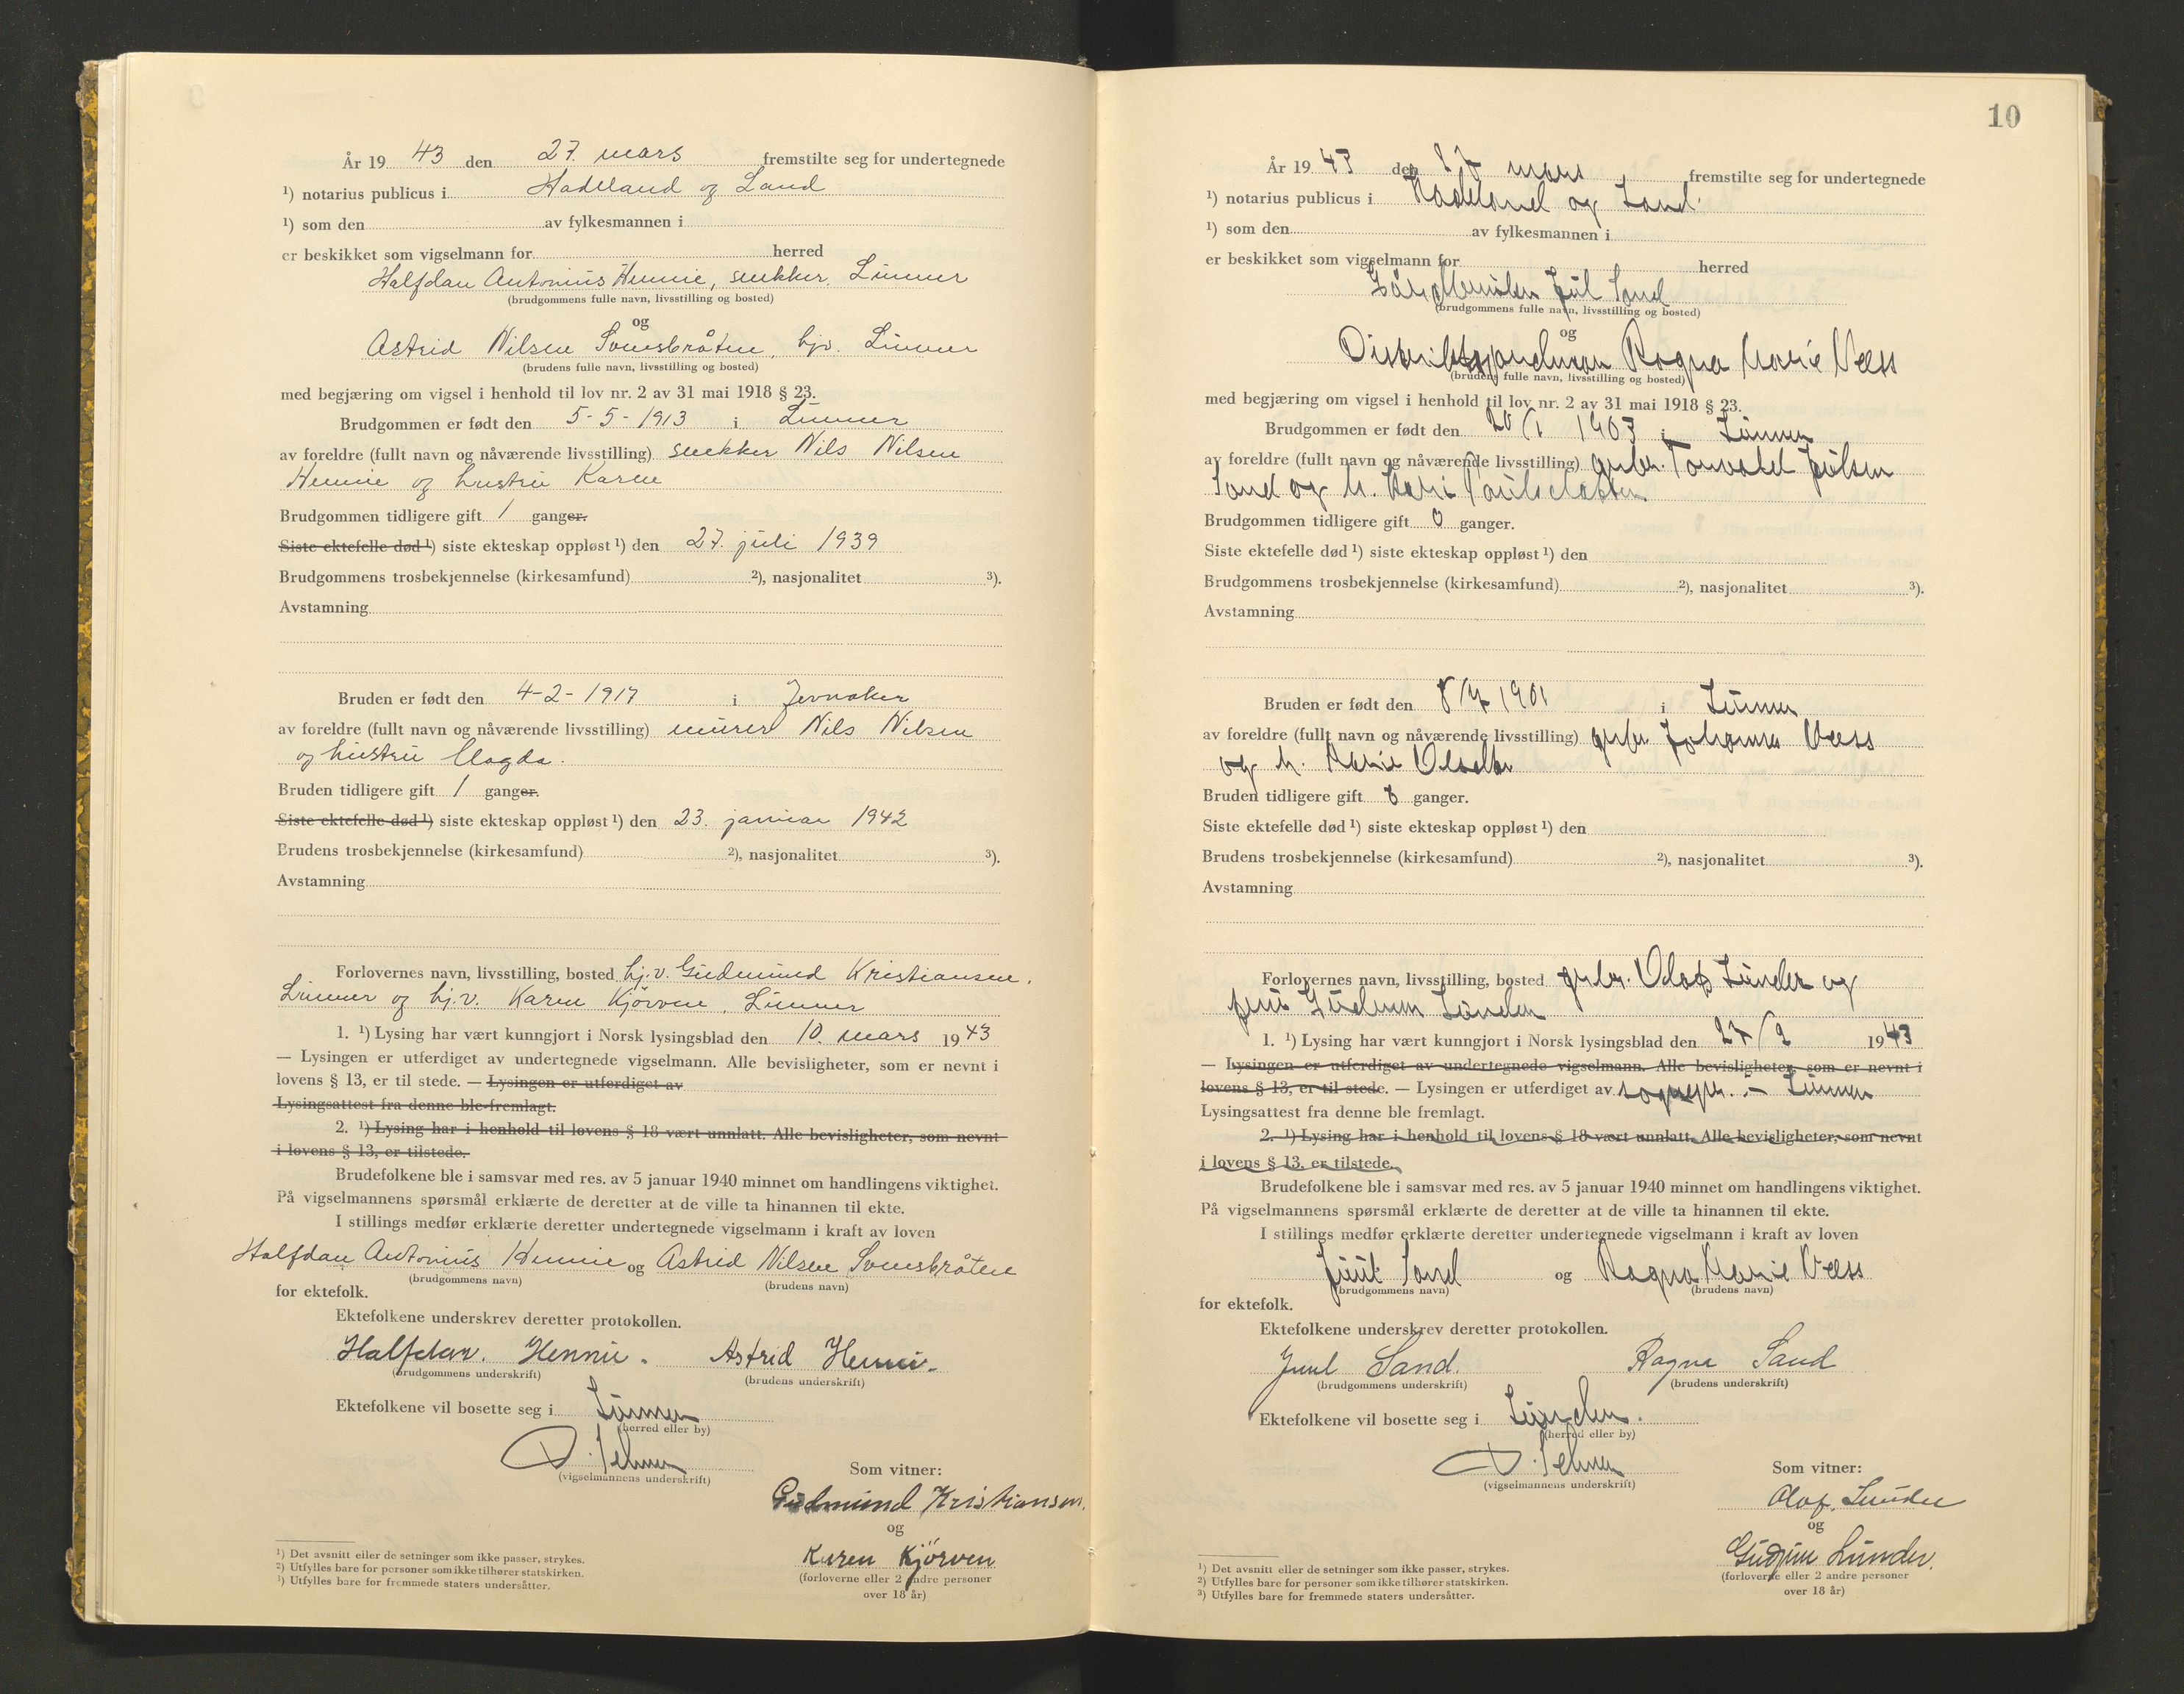 År 19 43 den 27. mars fremstilte seg for undertegnede
¹) notarius publicus i Hadeland og Land
¹) som den av fylkesmannen i
er beskikket som vigselmann for herred
Halfdan Antonius Hennie, snekker, Lunner
(brudgommens fulle navn, livsstilling og bosted)
og
Astrid Nilsen Svensbråten, hjv. Lunner
(brudens fulle navn, livsstilling og bosted)
med begjæring om vigsel i henhold til lov nr. 2 av 31 mai 1918 § 23.
Brudgommen er født den 5-5-1913 i Lunner
av foreldre (fullt navn og nåværende livsstilling) snekker Nils Nilsen
Hennie og hustru Karen
Brudgommen tidligere gift 1 ganger.
Siste ektefelle død ¹) siste ekteskap oppløst ¹) den 27. juli 1939
Brudgommens trosbekjennelse (kirkesamfund) ²), nasjonalitet ³).
Avstamning
Bruden er født den 4-2-1917 i Jevnaker
av foreldre (fullt navn og nåværende livsstilling) murer Nils Nilsen
og hustru Magda.
Bruden tidligere gift 1 ganger.
Siste ektefelle død ¹) siste ekteskap oppløst ¹) den 23. januar 1942
Brudens trosbekjennelse (kirkesamfund) ²), nasjonalitet ³).
Avstamning
Forlovernes navn, livsstilling, bosted hj.v. Gudmund Kristiansen,
Lunner og hj.v. Karen Kjörven, Lunner
1. ¹) Lysing har vært kunngjort i Norsk lysingsblad den 10. mars 19 43
— Lysingen er utferdiget av undertegnede vigselmann. Alle bevisligheter, som er nevnt i
lovens § 13, er til stede. — Lysingen er utferdiget av
Lysingsattest fra denne ble fremlagt.
2. ¹) Lysing har i henhold til lovens § 18 vært unnlatt. Alle bevisligheter, som nevnt
i lovens § 13, er tilstede.
Brudefolkene ble i samsvar med res. av 5 januar 1940 minnet om handlingens viktighet.
På vigselmannens spørsmål erklærte de deretter at de ville ta hinannen til ekte.
I stillings medfør erklærte deretter undertegnede vigselmann i kraft av loven
Halfdan Antonius Hennie og Astrid Nilsen Svensbråten
(brudgommens navn) (brudens navn)
for ektefolk.
Ektefolkene underskrev deretter protokollen.
Halfdan. Hennie. Astrid Hennie.
(brudgommens underskrift) (brudens underskrift)
Ektefolkene vil bosette seg i Lunner
(herred eller by)
(vigselmannens underskrift)
Som vitner:
Gudmund Kristiansen.
og
Karen Kjörven
(forloverne eller 2 andre personer
over 18 år)
¹) Det avsnitt eller de setninger som ikke passer, strykes.
²) Utfylles bare for personer som ikke tilhører statskirken.
³) Utfylles bare for fremmede staters undersåtter.
10
År 19 43 den 27 mars fremstilte seg for undertegnede
¹) notarius publicus i Hadeland og Land
¹) som den av fylkesmannen i
er beskikket som vigselmann for herred
Juul Sand
(brudgommens fulle navn, livsstilling og bosted)
og
Ragna Marie Næss
(brudens fulle navn, livsstilling og bosted)
med begjæring om vigsel i henhold til lov nr. 2 av 31 mai 1918 § 23.
Brudgommen er født den 20/1 1903 i Lunner
av foreldre (fullt navn og nåværende livsstilling) grbr. Torvald Julsen
Sand og h. Kari
Brudgommen tidligere gift 0 ganger.
Siste ektefelle død ¹) siste ekteskap oppløst ¹) den
Brudgommens trosbekjennelse (kirkesamfund) ²), nasjonalitet ³).
Avstamning
Bruden er født den 8/7 1901 i Lunner
av foreldre (fullt navn og nåværende livsstilling) grbr. Johannes Næss
og h. Karie Olsdtr
Bruden tidligere gift 0 ganger.
Siste ektefelle død ¹) siste ekteskap oppløst ¹) den
Brudens trosbekjennelse (kirkesamfund) ²), nasjonalitet ³).
Avstamning
Forlovernes navn, livsstilling, bosted grbr. Olof Lunder og
fru Gudrun Lunder
1. ¹) Lysing har vært kunngjort i Norsk lysingsblad den 27/2 19 43
— Lysingen er utferdiget av undertegnede vigselmann. Alle bevisligheter, som er nevnt i
lovens § 13, er til stede. — Lysingen er utferdiget av sognepr. i Lunner
Lysingsattest fra denne ble fremlagt.
2. ¹) Lysing har i henhold til lovens § 18 vært unnlatt. Alle bevisligheter, som nevnt
i lovens § 13, er tilstede.
Brudefolkene ble i samsvar med res. av 5 januar 1940 minnet om handlingens viktighet.
På vigselmannens spørsmål erklærte de deretter at de ville ta hinannen til ekte.
I stillings medfør erklærte deretter undertegnede vigselmann i kraft av loven
Juul Sand og Ragna Marie Næss
(brudgommens navn) (brudens navn)
for ektefolk.
Ektefolkene underskrev deretter protokollen.
Juul Sand. Ragna Sand
(brudgommens underskrift) (brudens underskrift)
Ektefolkene vil bosette seg i
(herred eller by)
(vigselmannens underskrift)
Som vitner:
Olof. Lunder
og
Gudrun Lunder.
(forloverne eller 2 andre personer
over 18 år)
¹) Det avsnitt eller de setninger som ikke passer, strykes.
²) Utfylles bare for personer som ikke tilhører statskirken.
³) Utfylles bare for fremmede staters undersåtter.